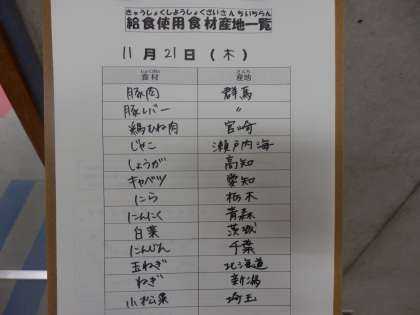 きゅうしょくしようしょくざいさんちいちらん
給食使用食材産地一覧
11月21日(木)
しょくざい さんち
食材 産地
豚肉 群馬
豚レバー 〃
鶏むね肉 宮崎
じゃこ 瀬戸内海
しょうが 高知
キャベツ 愛知
にら 栃木
にんにく 青森
白菜 茨城
にんじん 千葉
玉ねぎ 北海道
ねぎ 新潟
小松菜 埼玉